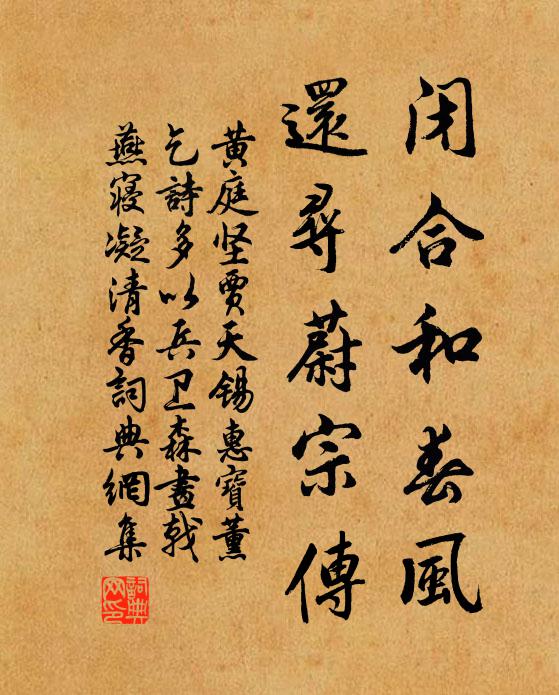 闭合和春風
還尋蔚宗傳
黄庭坚賈天锡惠寳薰
乞詩多以兵卫森畫戟
燕寝凝清香詞典網集
詞典
网印